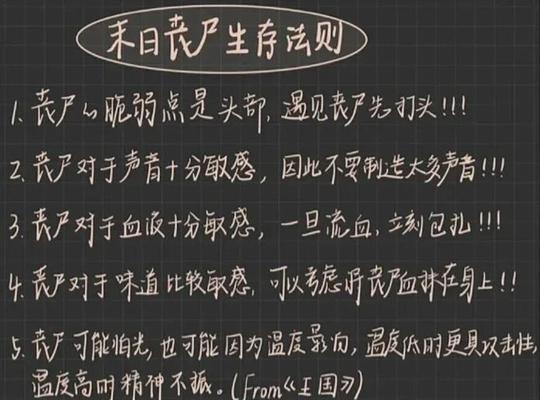 末日丧尸生存法则
1. 丧尸的脆弱点是头部，遇见丧尸先打头!!!
2. 丧尸对于声音十分敏感，因此不要制造太多声音!!!
3. 丧尸对于血液十分敏感，一旦流血，立刻包扎!!!
4. 丧尸对于味道比较敏感，可以考虑将丧尸血抹在身上!!
5. 丧尸可能怕光，也可能因为温度影响，温度低时更具攻击性，
温度高时精神不振。(from《王国》)